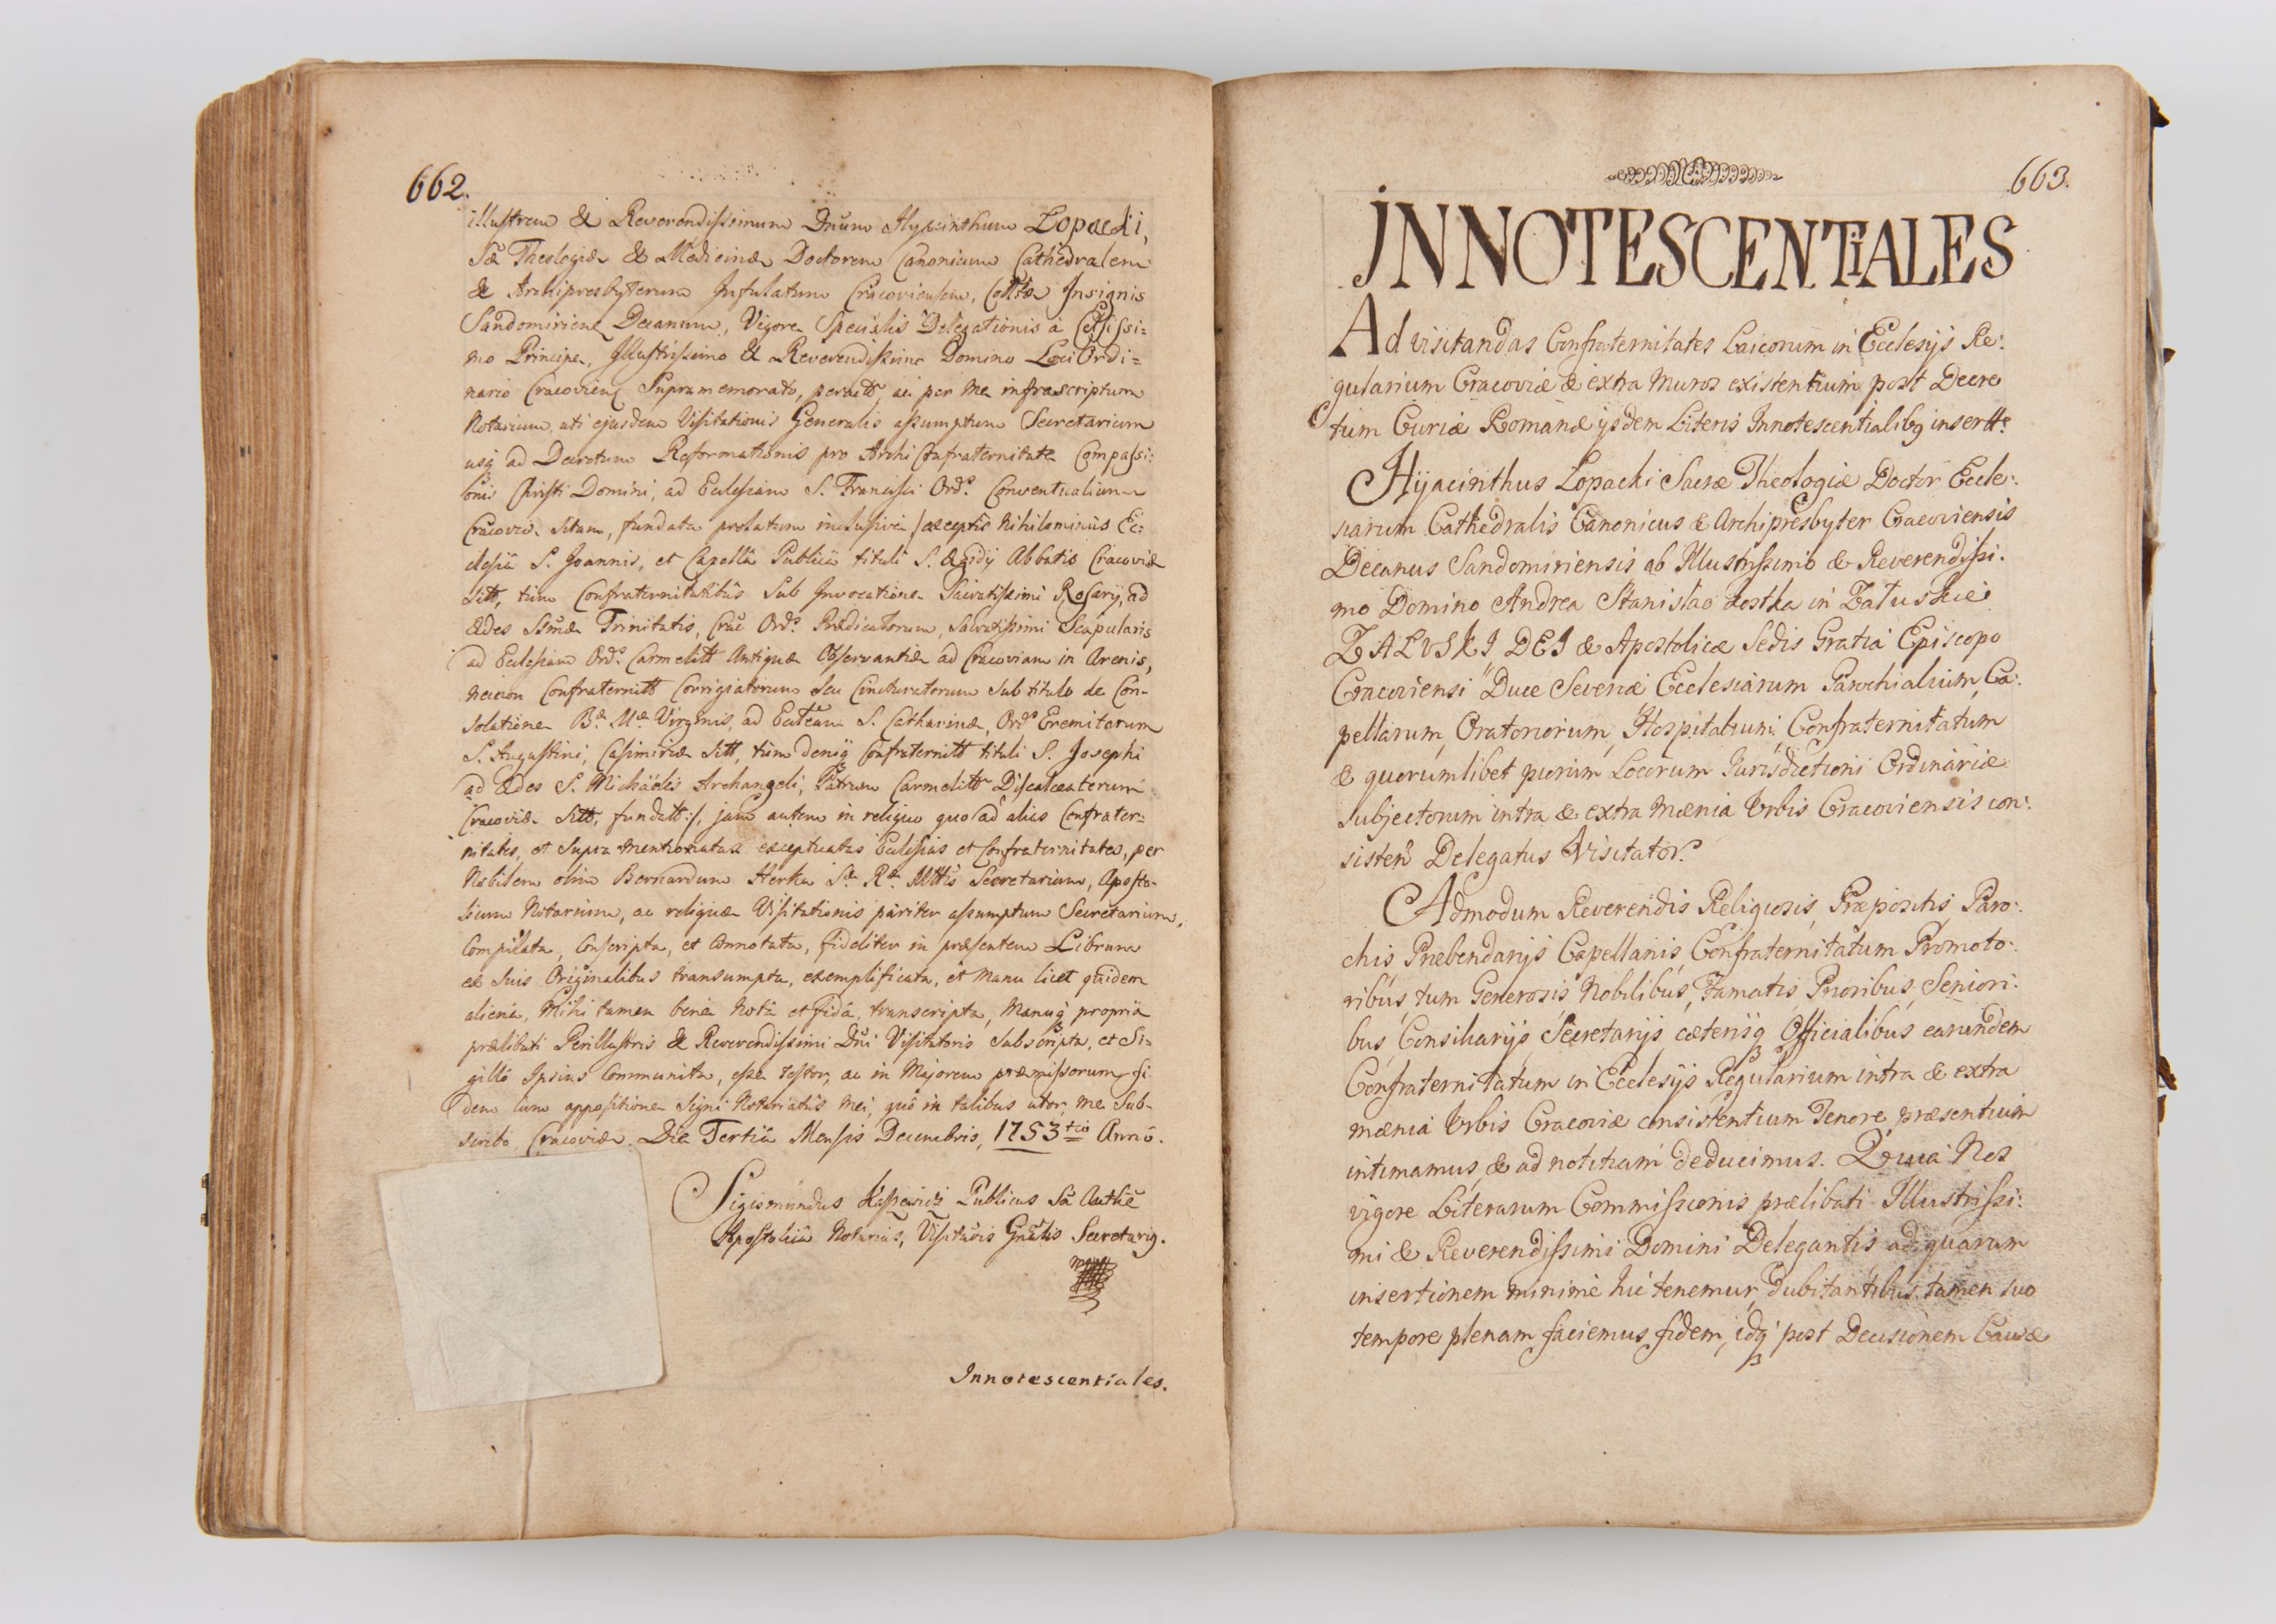 662.
illustrem & Reverendissimum Dnum Hyacinthum Lopacki,
Sæ Theologiæ & Medicinæ Doctorem Canonicum Cathedralem
& Archipresbyterum Infulatum Cracoviensem, Insignis
Sandomirien Decanum, Vigore Specialis Delegationis à Celsissi=
mo Principe, Illustrissimo & Reverendissimo Domino Loci Ordi=
nario Cracovien Supramemorato, peractt, ac per me infrascriptum
Notarium, uti ejusdem Visitationis Generalis assumptum Secretarium
usq ad Decretum Reformationis pro Archi Cõfraternitate Compassi:
onis Christi Domini, ad Ecclesiam S. Francisci Ord: Conventualium
Cracoviæ sitam, fundata prolatum inclusivè /exceptis nihilominus Ec:
clesiâ S. Joannis, et Capellâ Publicâ tituli S. Ægidij Abbatis Cracoviæ
sitt, tum Confraternitatibus sub Invocatione Sacratissimi Rosarij, ad
Ædes SSmæ Trinitatis, Crac Ord: Prædicatorum, Sacratissimi Scapularis
ad Ecclesiam Ord: Carmelitt Antiquæ Observantiæ ad Cracoviam in Arenis,
necnon Confraternitt Corrigiatorum seu Cincturatorum sub titulo de Con-
solatione Bæ Mæ Virginis, ad Ecclam S. Catharinæ, Ord: Eremitarum
S. Augustini, Casimiriæ sitt, tum deniq Confraternitt tituli S. Josephi
ad Ædes S. Michaëlis Archangeli, Patrum Carmelitt Discalceatorum
Cracoviæ sitt, fundatt:/, jam autem in reliquo quo ad alias Confrater=
nitates, et supra mentionatas exceptuatas Ecclesias et Confraternitates, per
Nobilem olim Bernardum Herka Sæ Ræ Mttis Secretarium, Aposto-
licum Notarium, ac reliquæ Visitationis pariter assumptum Secretarium,
Compilata, Conscripta, et Connotata, fideliter in præsentem Librum
ex suis Originalibus transumpta, exemplificata, et manu licet quidem
alienâ, Mihi tamen bene notâ et fidâ, transcripta, Manuq propriâ
prælibati Perillustris & Reverendissimi Dni Visitatoris subscripta, et Si=
gillô Ipsius Communita, esse testor, ac in Majorem præmissorum fi
dem cum appositione Signi Notariatûs mei, quô in talibus utor, me sub-
scribo Cracoviæ. Die Tertiâ Mensis Decembris, 1753tio Annô.
Sigismundus Publicus Sâ Authe
Apostolicâ Notarius, Visitaõis Gnalis Secretarig.
Innotescentiales.
663.
INNOTESCENTiALES
Ad visitandas Confraternitates Laicorum in Ecclesijs Re:
gularium Cracoviæ & extra muros existentium post Decre
tum Curiæ Romanæ ijsdem Literis Innotescentialibg insertt:
Hyacinthus Lopacki Sacræ Theologiæ Doctor Eccle:
siarum Cathedralis Canonicus & Archipresbyter Cracoviensis
Decanus Sandomiriensis ab Illustrissimo & Reverendissi:
mo Domino Andrea Stanislao Kostka in Załuskie
ZALVSKI DEI & Apostolicæ Sedis Gratia Episcopo
Cracoviensi Duce Severiæ Ecclesiarum Parochialium, Ca:
pellarum, Oratoriorum, Hospitalium, Confraternitatum
& quorumlibet piorum Locorum Jurisdictioni Ordinariæ
subjectorum intra & extra mænia Urbis Cracoviensis con:
sisten Delegatus Visitator.
Admodum Reverendis Religiosis, Præpositis, Paro:
chis, Præbendarijs Capellanis, Confraternitatum Promoto:
ribus, tum Generosis Nobilibus, Famatis Prioribus, Seniori:
bus, Consiliarijs, Secretarijs cæterisq Officialibus earundem
Confraternitatum in Ecclesijs Regularium intra & extra
mænia Urbis Cracoviæ consistentium Tenore præsentium
intimamus, & ad notitiam deducimus. Quia Nos
vigore Literarum Commissionis prælibati Illustrissi:
mi & Reverendissimi Domini Delegantis ad quarum
insertionem minime hic tenemur, dubitantibus tamen suo
tempore plenam faciemus fidem, idq post Decisionem Causæ